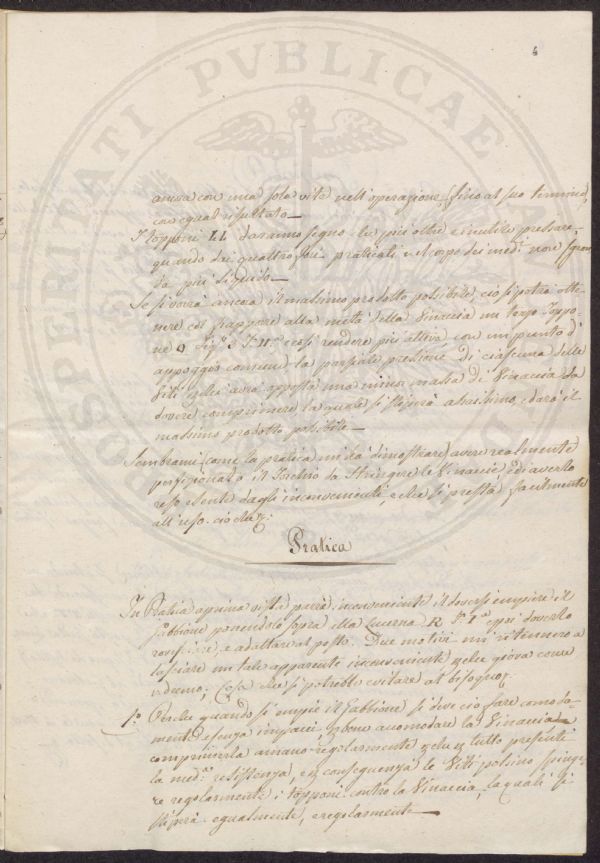 4
PROSPERITATI PVBLICAE
ancora con una sola vite nell'operazione, fino al suo termine,
con egual risultato —
I topponi LL daranno segno che più oltre è inutile pressare,
quando dai quattro fori praticati nel corpo dei med.mi non
da più liquido —
Se si vorrà ancora il massimo prodotto possibile, ciò si potrà otte-
nere col frappore alla metà della Vinaccia un terzo Toppo-
ne Q Fig.a e così rendere più attiva con un punto d'
appoggio comune la parziale pressione di ciascuna delle
Viti quale avrà apposta una minor massa di Vinaccia da
dovere comprimere la quale si stiperà assaissimo, e darà il
massimo prodotto possibile —
Sembrami (come la pratica mi ha dimostrato) avere realmente
perfezionato il Torchio da Stringere le Vinacie, ed averlo
reso esente dagli inconvenienti, e che si presta facilmente
all'uso
Pratica
In Pratica a prima vista parrà inconveniente il doversi empiere il
gabbione ponendolo sopra alla Lucerna R e poi doverlo
e adattare al posto. Due motivi mi ritennero a
lasciare un tale apparente inconveniente, e che giova come
vedremo; Cosa che si potrebbe evitare al bisogno.
1.o Perchè quando si empie il Gabbione si deve ciò fare comoda-
mente, e senza impacci e bene accomodare la Vinaccia e
comprimerla a mano regolarmente che in tutto presenti
la med.ma resistenza, e in conseguenza le Viti possino spinge-
re regolarmente i topponi contro la Vinaccia, la quale si
stiperà egualmente, e regolarmente —